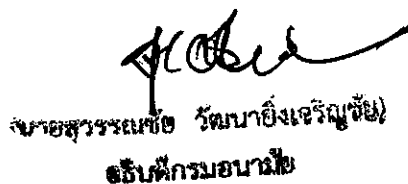 (นายสุวรรณชัย วัฒนายิ่งเจริญชัย)
อธิบดีกรมอนามัย